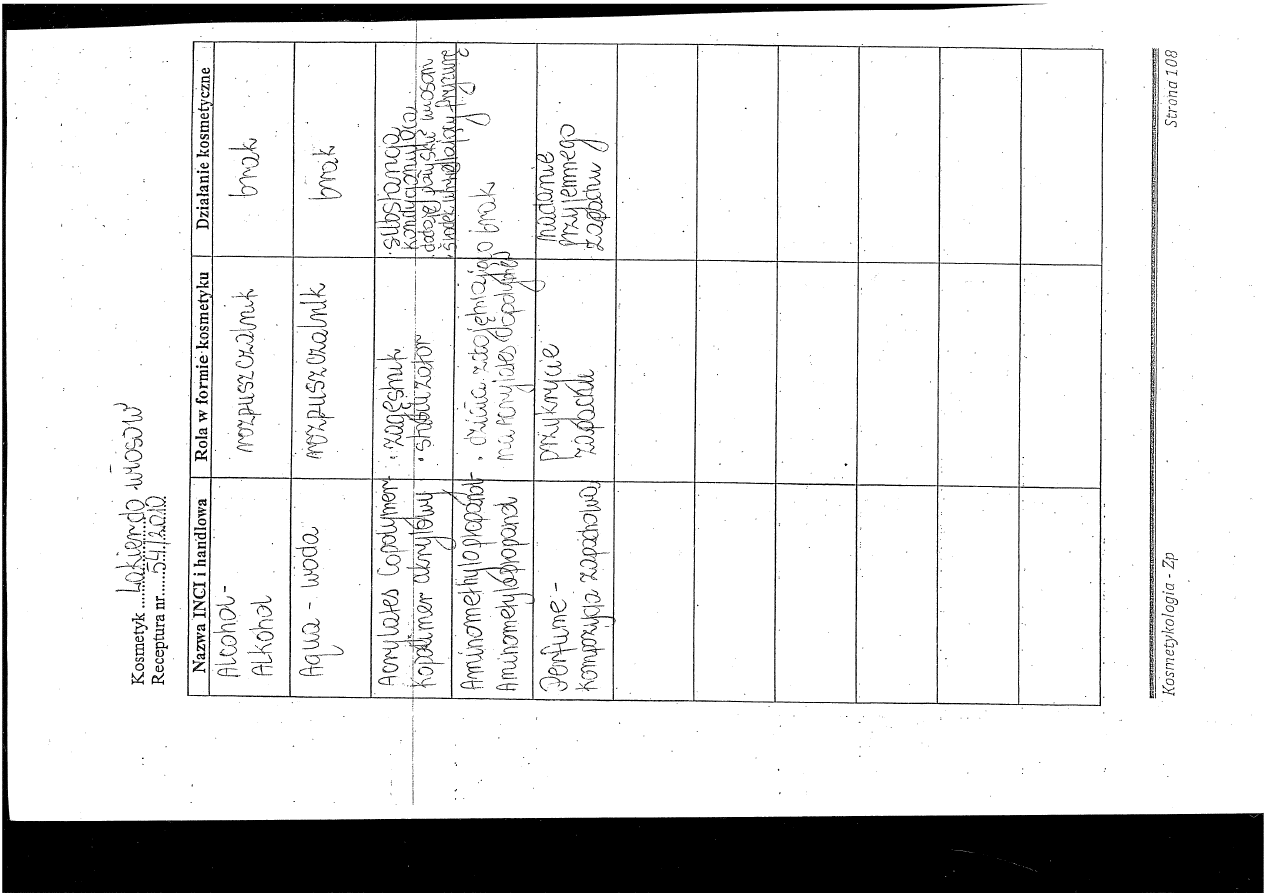 Kosmetyk ....Lakier do włosów
Receptura nr.....54/2010
Nazwa INCI i handlowa
Rola w formie kosmetyku
Działanie kosmetyczne
Alcohol -
Alkohol
rozpuszczalnik
brak
Aqua - woda
rozpuszczalnik
brak
Acrylates Copolymer -
Kopolimer akrylowy
• zagęstnik
• stabilizator
• substancja
kondycjonująca
• dodaje połysku włosom
• środek utrwalający fryzurę
Aminomethylopropanol -
Aminometylopropanol
• działa zobojętniająco
na Acrylates Copolymer
brak
Perfume -
kompozycja zapachowa
przykrycie
zapachu
nadanie
przyjemnego
zapachu
Kosmetykologia - Zp
Strona 108